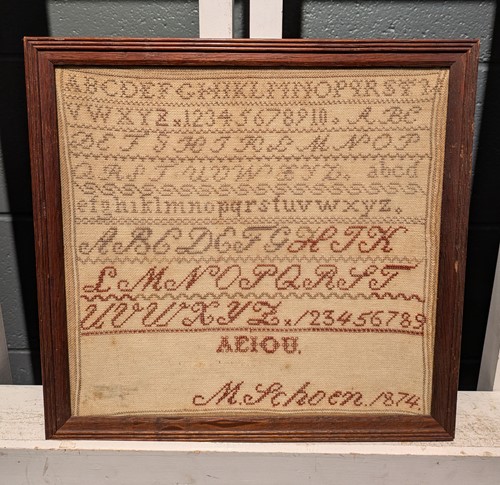 ABCDEFGHIKLMNOPQRSTU
VWXYZ×12345678910. ABC
DEFGHIKLMNOP
QRSTUVWXYZ. abcd
efghiklmnopqrstuvwxyz.
ABCDEFGHIK
LMNOPQRST
UVWXYZ×123456789
AEIOU.
M. Schoen. 1874.